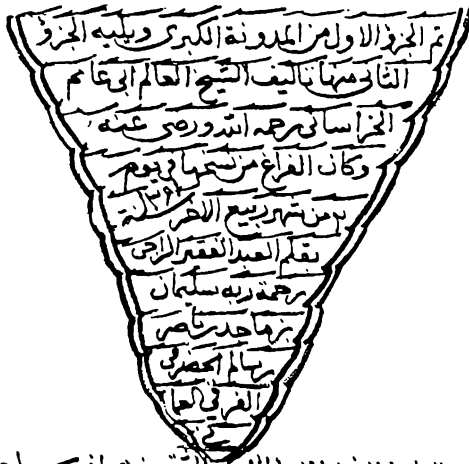 تم الجزؤ الاول من المدونة الكبرى ويليه الجزؤ
الثاني منها تاليف الشيخ العالم ابي غانم
الخراساني رحمه الله ورضي عنه
وكان الفراغ من نسخها في يوم
من شهر ربيع الآخر سنة
بقلم العبد الفقير الراجي
رحمة ربه سليمان
بن ماجد بن ناصر
بن سالم الحضرمي